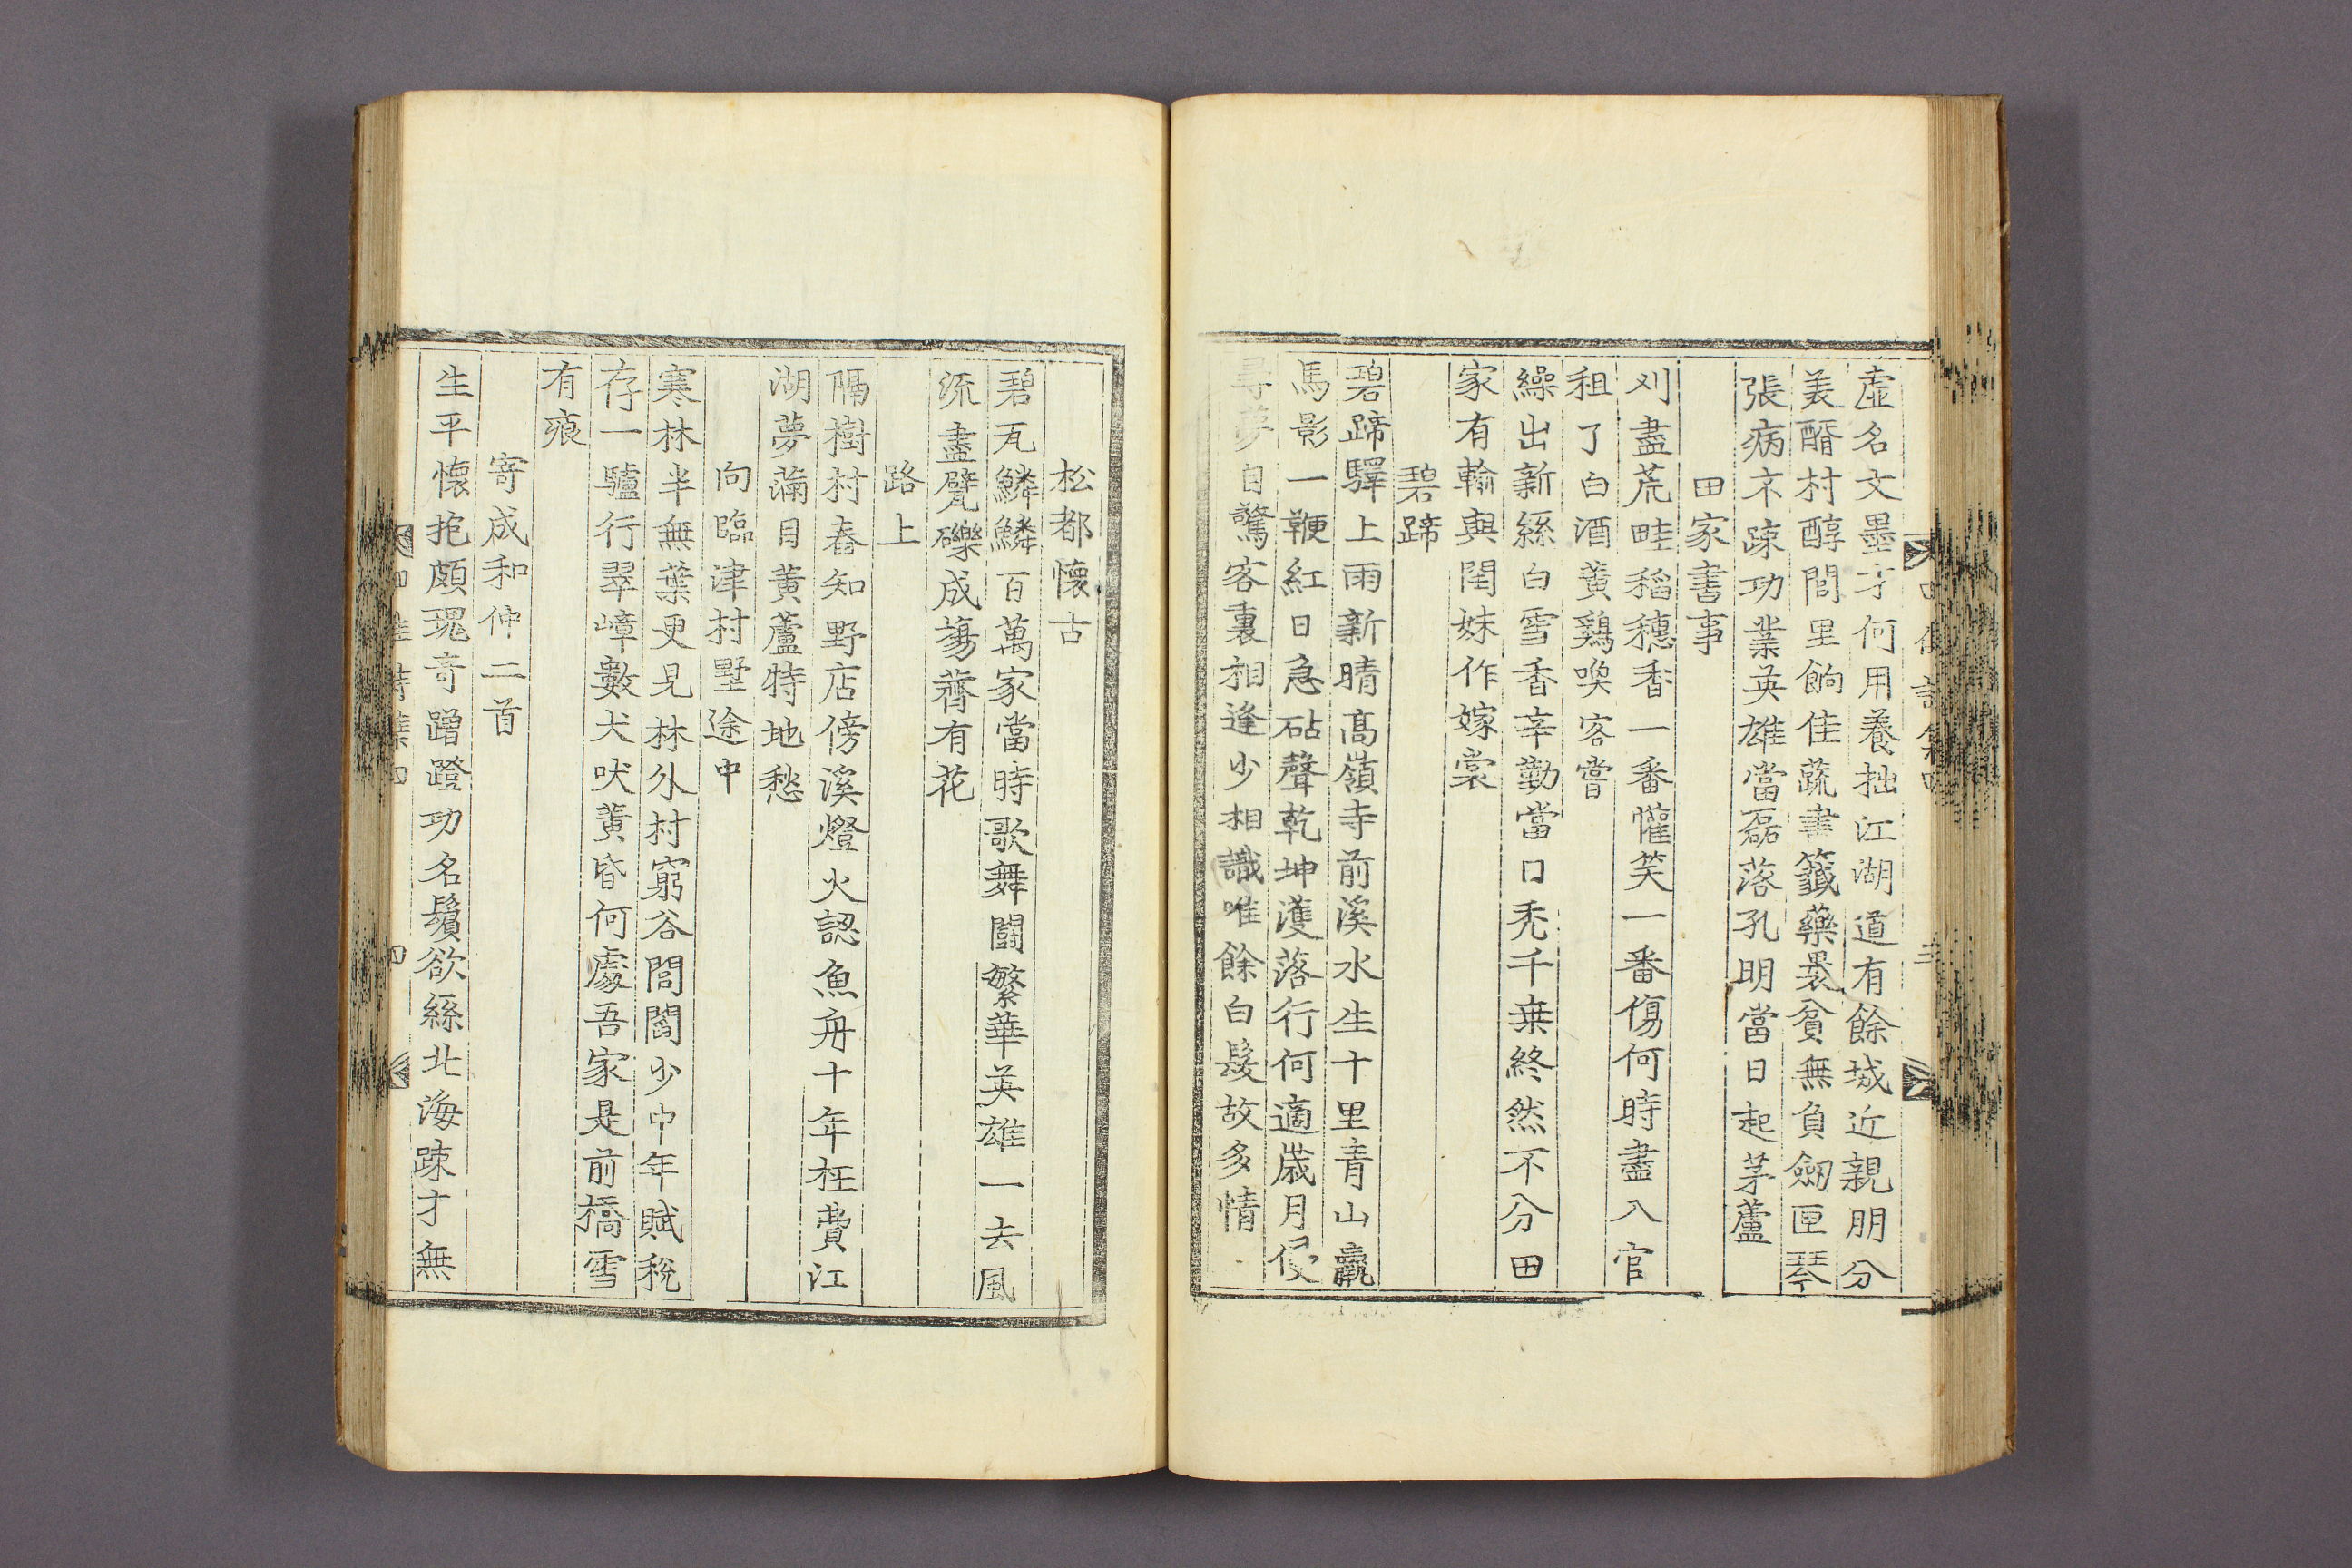 虛名文墨才何用養拙江湖道有餘城近親朋分
美醑村醇閭里餉佳蔬書籤藥褁貧無負劒匣琴
張病不疎功業英雄當磊落孔明當日起茅蘆
田家書事
刈盡荒畦稻穗香一番懽笑一番傷何時盡入官
租了白酒黃鷄喚客嘗
繰出新絲白雪香辛勤當日禿千桒終然不分田
家有輸與閨妹作嫁裳
碧蹄
碧蹄驛上雨新晴高嶺寺前溪水生十里青山羸
馬影一鞭紅日急砧聲乾坤濩落行何適歲月侵
尋夢自驚客裏相逢少相識唯餘白髮故多情
松都懷古
碧瓦鱗鱗百萬家當時歌舞鬪繁華英雄一去風
流盡甓礫成塲薺有花
路上
隔樹村舂知野店傍溪燈火認魚舟十年枉費江
湖夢滿目黃蘆特地愁
向臨津村墅途中
寒林半無葉更見林外村窮谷閭閻少中年賦稅
存一驢行翠嶂數犬吠黃昏何處吾家是前橋雪
有痕
寄成和仲二首
生平懷抱頗瑰奇蹭蹬功名鬢欲絲北海踈才無